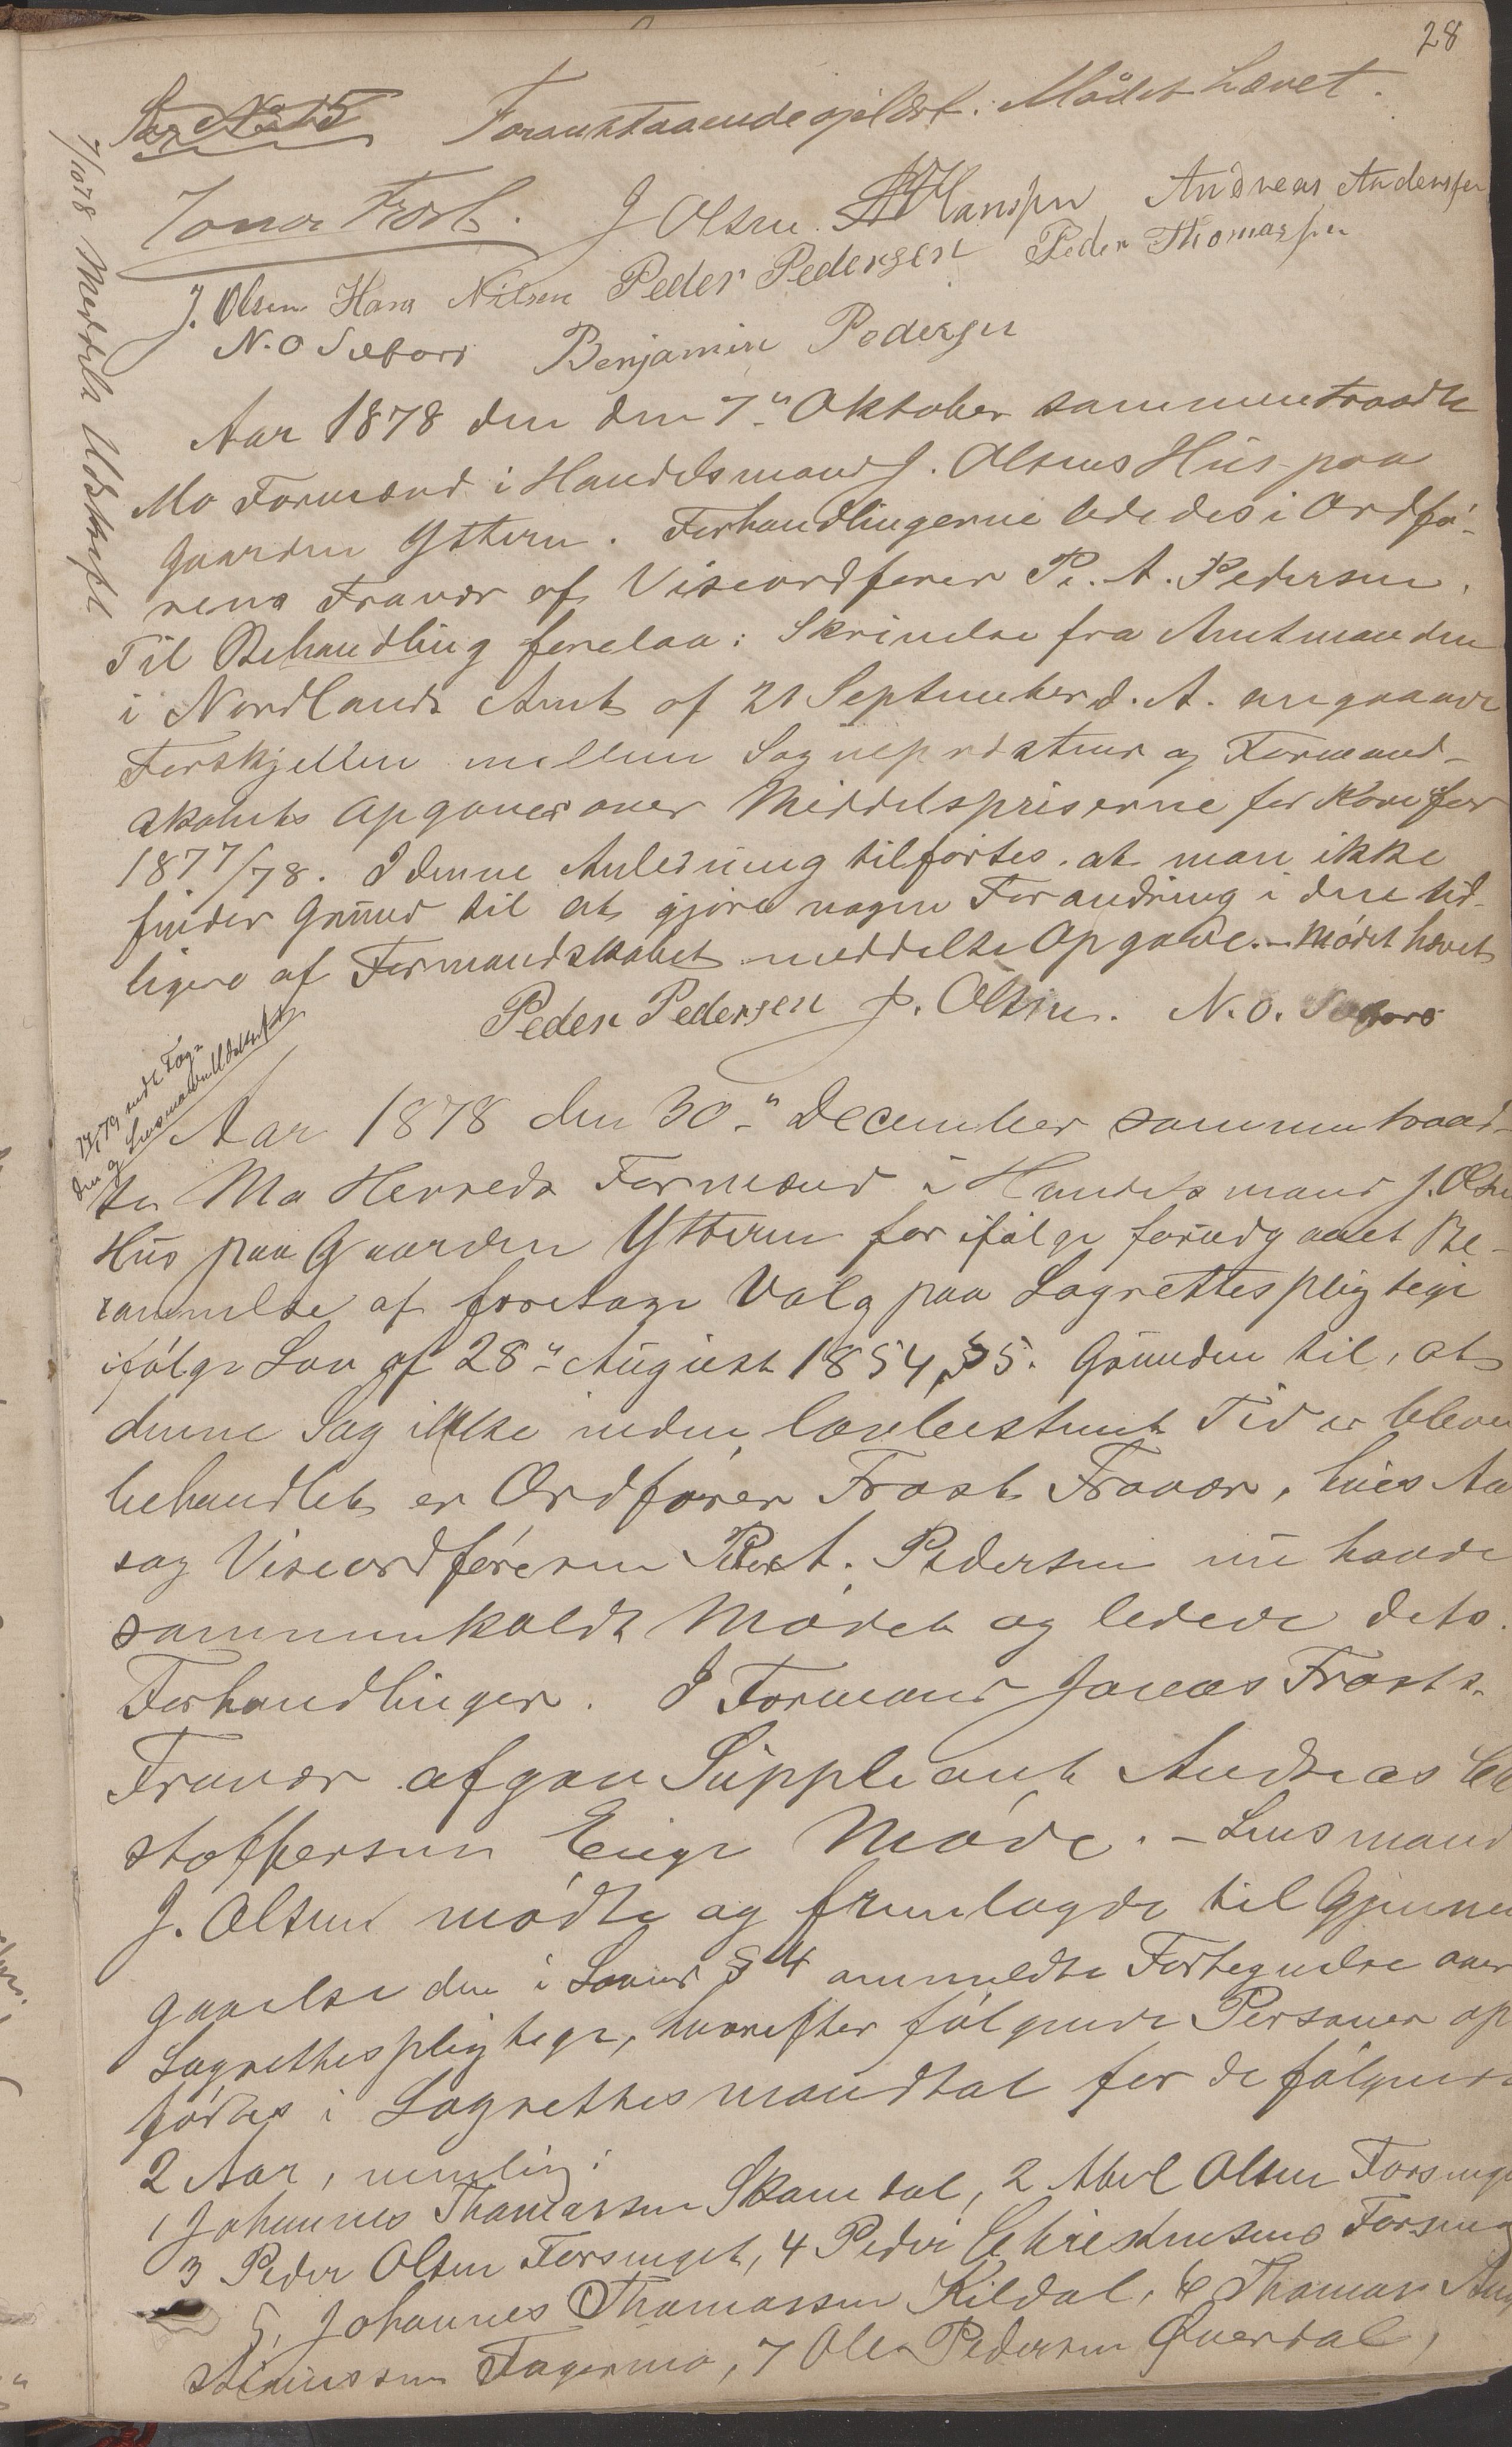 28
Sag No 15 Foranstaaende oplæst. Mødet hævet.
Jonas Frost. J Olsen. Hanssen Andreas Anderssen
J. Olsen Hans Nilsen Peder Pedersen Peder Thomassen
N. O Sæfors Benjamin Pedersen
7/10 78 Meddelt Udskrift
Aar 1878 den den 7n Oktober sammentraadte
Mo Formænd i Handelsmand J. Olsens Hus paa
Gaarden Yttern. Forhandlingerne lededes i Ordfø-
rens Fravær af Viseordfører P. A. Pedersen.
Til Behandling forelaa: Skrivelse fra Amtmanden
i Nordlands Amt af 21 September d. A. angaaende
Forskjellen mellem Sognepræstens og Formand-
skabets Opgaver over Middelspriserne for Korn for
1877/78. I denne Anledning tilførtes, at man ikke
finder Grund til at gjøre nogen Forandring i den tid-
ligere af Formandskabet meddelte Opgave. - Mødet hævet
Peder Pedersen J. Olsen. N. O. Sæfors
Aar 1878 den 30n December sammentraad-
te Mo Herreds Formænd i Handelsmand J. Olsens
Hus paa Gaarden Yttern for ifølge forudgaaet Be-
rammelse at foretage Valg paa Lagrettespligtige
ifølge Lov af 28n August 1854, § 5. Grunden til, at
denne Sag ikke inden lovbestemt Tid er bleven
behandlet er Ordfører Frost Fravær, hvis Aar
sag Viseordføreren Peder A. Pedersen nu havde
sammenkaldt Mødet og ledede dets
Forhandlinger. I Formand Jonas Frosts
Fravær afgav Suppleant Andreas Chri
stoffersen Enge Møde. - Lensmand
J. Olsen mødte og fremlagde til Gjennem
gaaelse den i Lovens § 4 ommeldte Fortegnelse over
Lagrettespligtige, hvorefter følgende Personer op
førtes i Lagrettesmandtal for de følgende
2 Aar, nemlig:
1 Johannes Thomassen Skamdal, 2 Abel Olsen Forsmge
3 Peder Olsen Forsmget, 4 Peder Christensens Forsmg
5, Johannes Thomassen Kildal, 6 Thomas
Fagermo, 7 Ole Pedersen Øverdal,